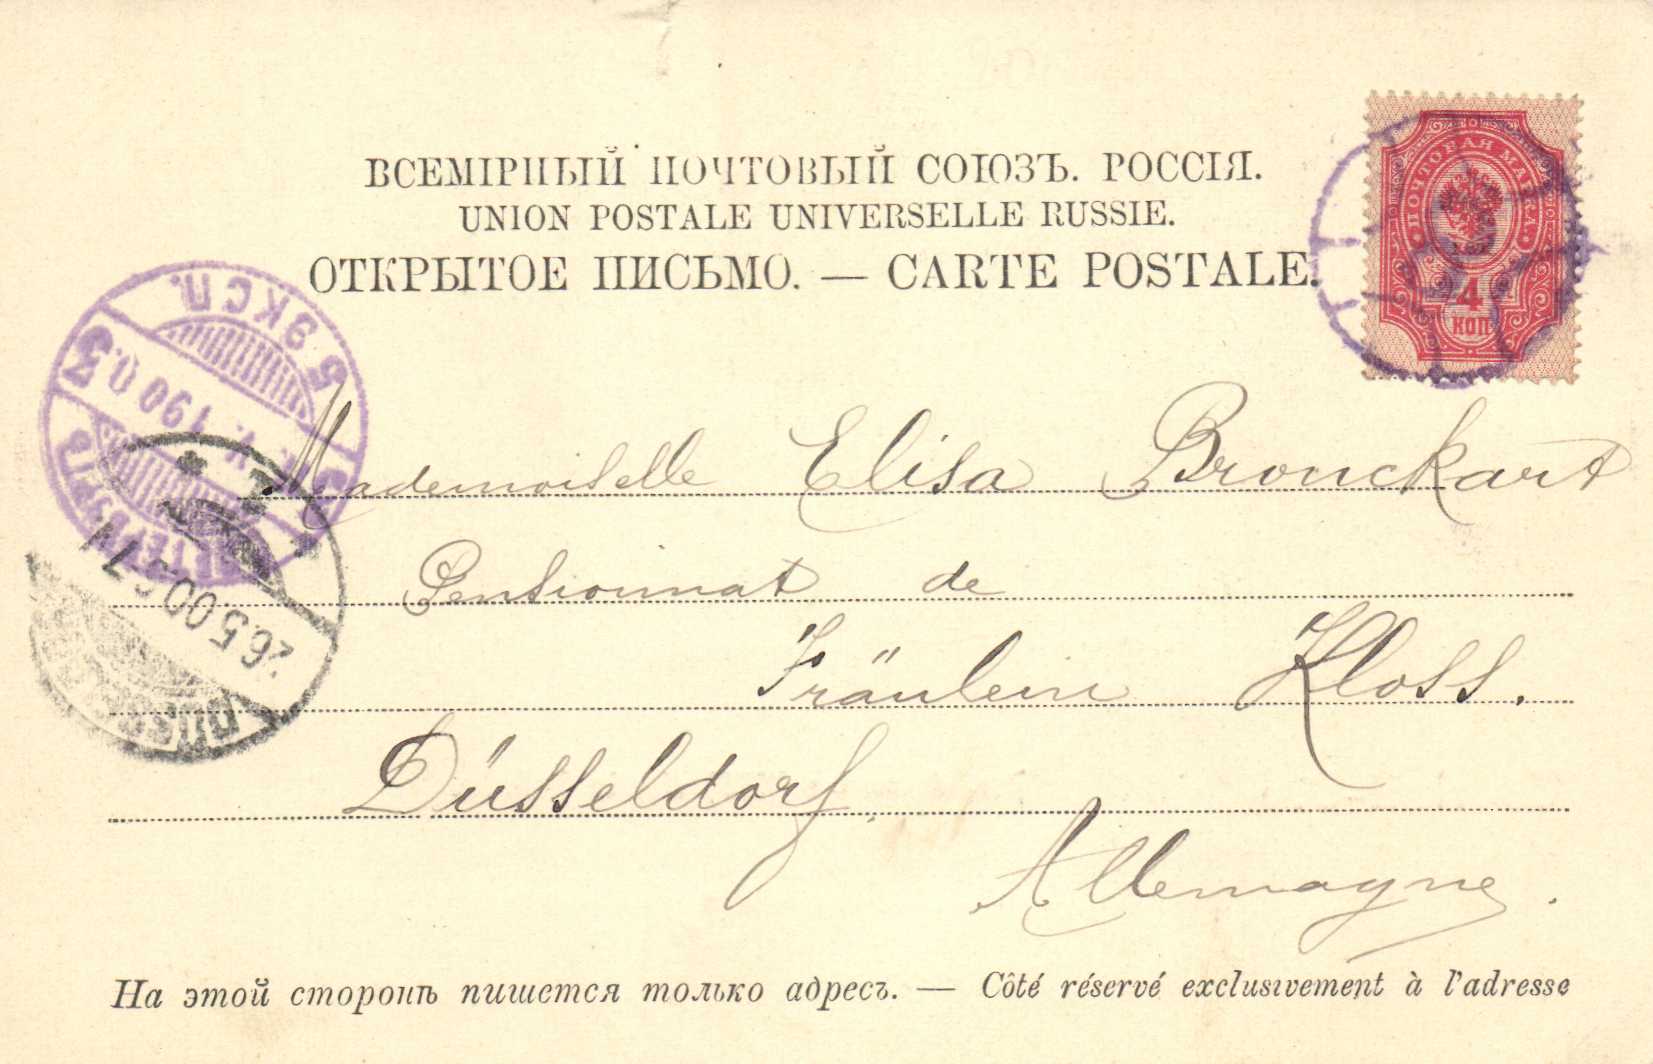 ВСЕМІРНЫЙ ПОЧТОВЫЙ СОЮЗЪ. РОССІЯ.
UNION POSTALE UNIVERSELLE RUSSIE.
ОТКРЫТОЕ ПИСЬМО. — CARTE POSTALE.
ПОЧТОВАЯ МАРКА.
4
КОП
5 ЭКСП.
3
190 0.
26.5.00.
Mademoiselle Elisa Bronckart
Pensionnat de
Fräulein Kloss.
Düsseldorf.
Allemagne.
На этой сторонѣ пишется только адресъ. — Côté réservé exclusivement à l'adresse